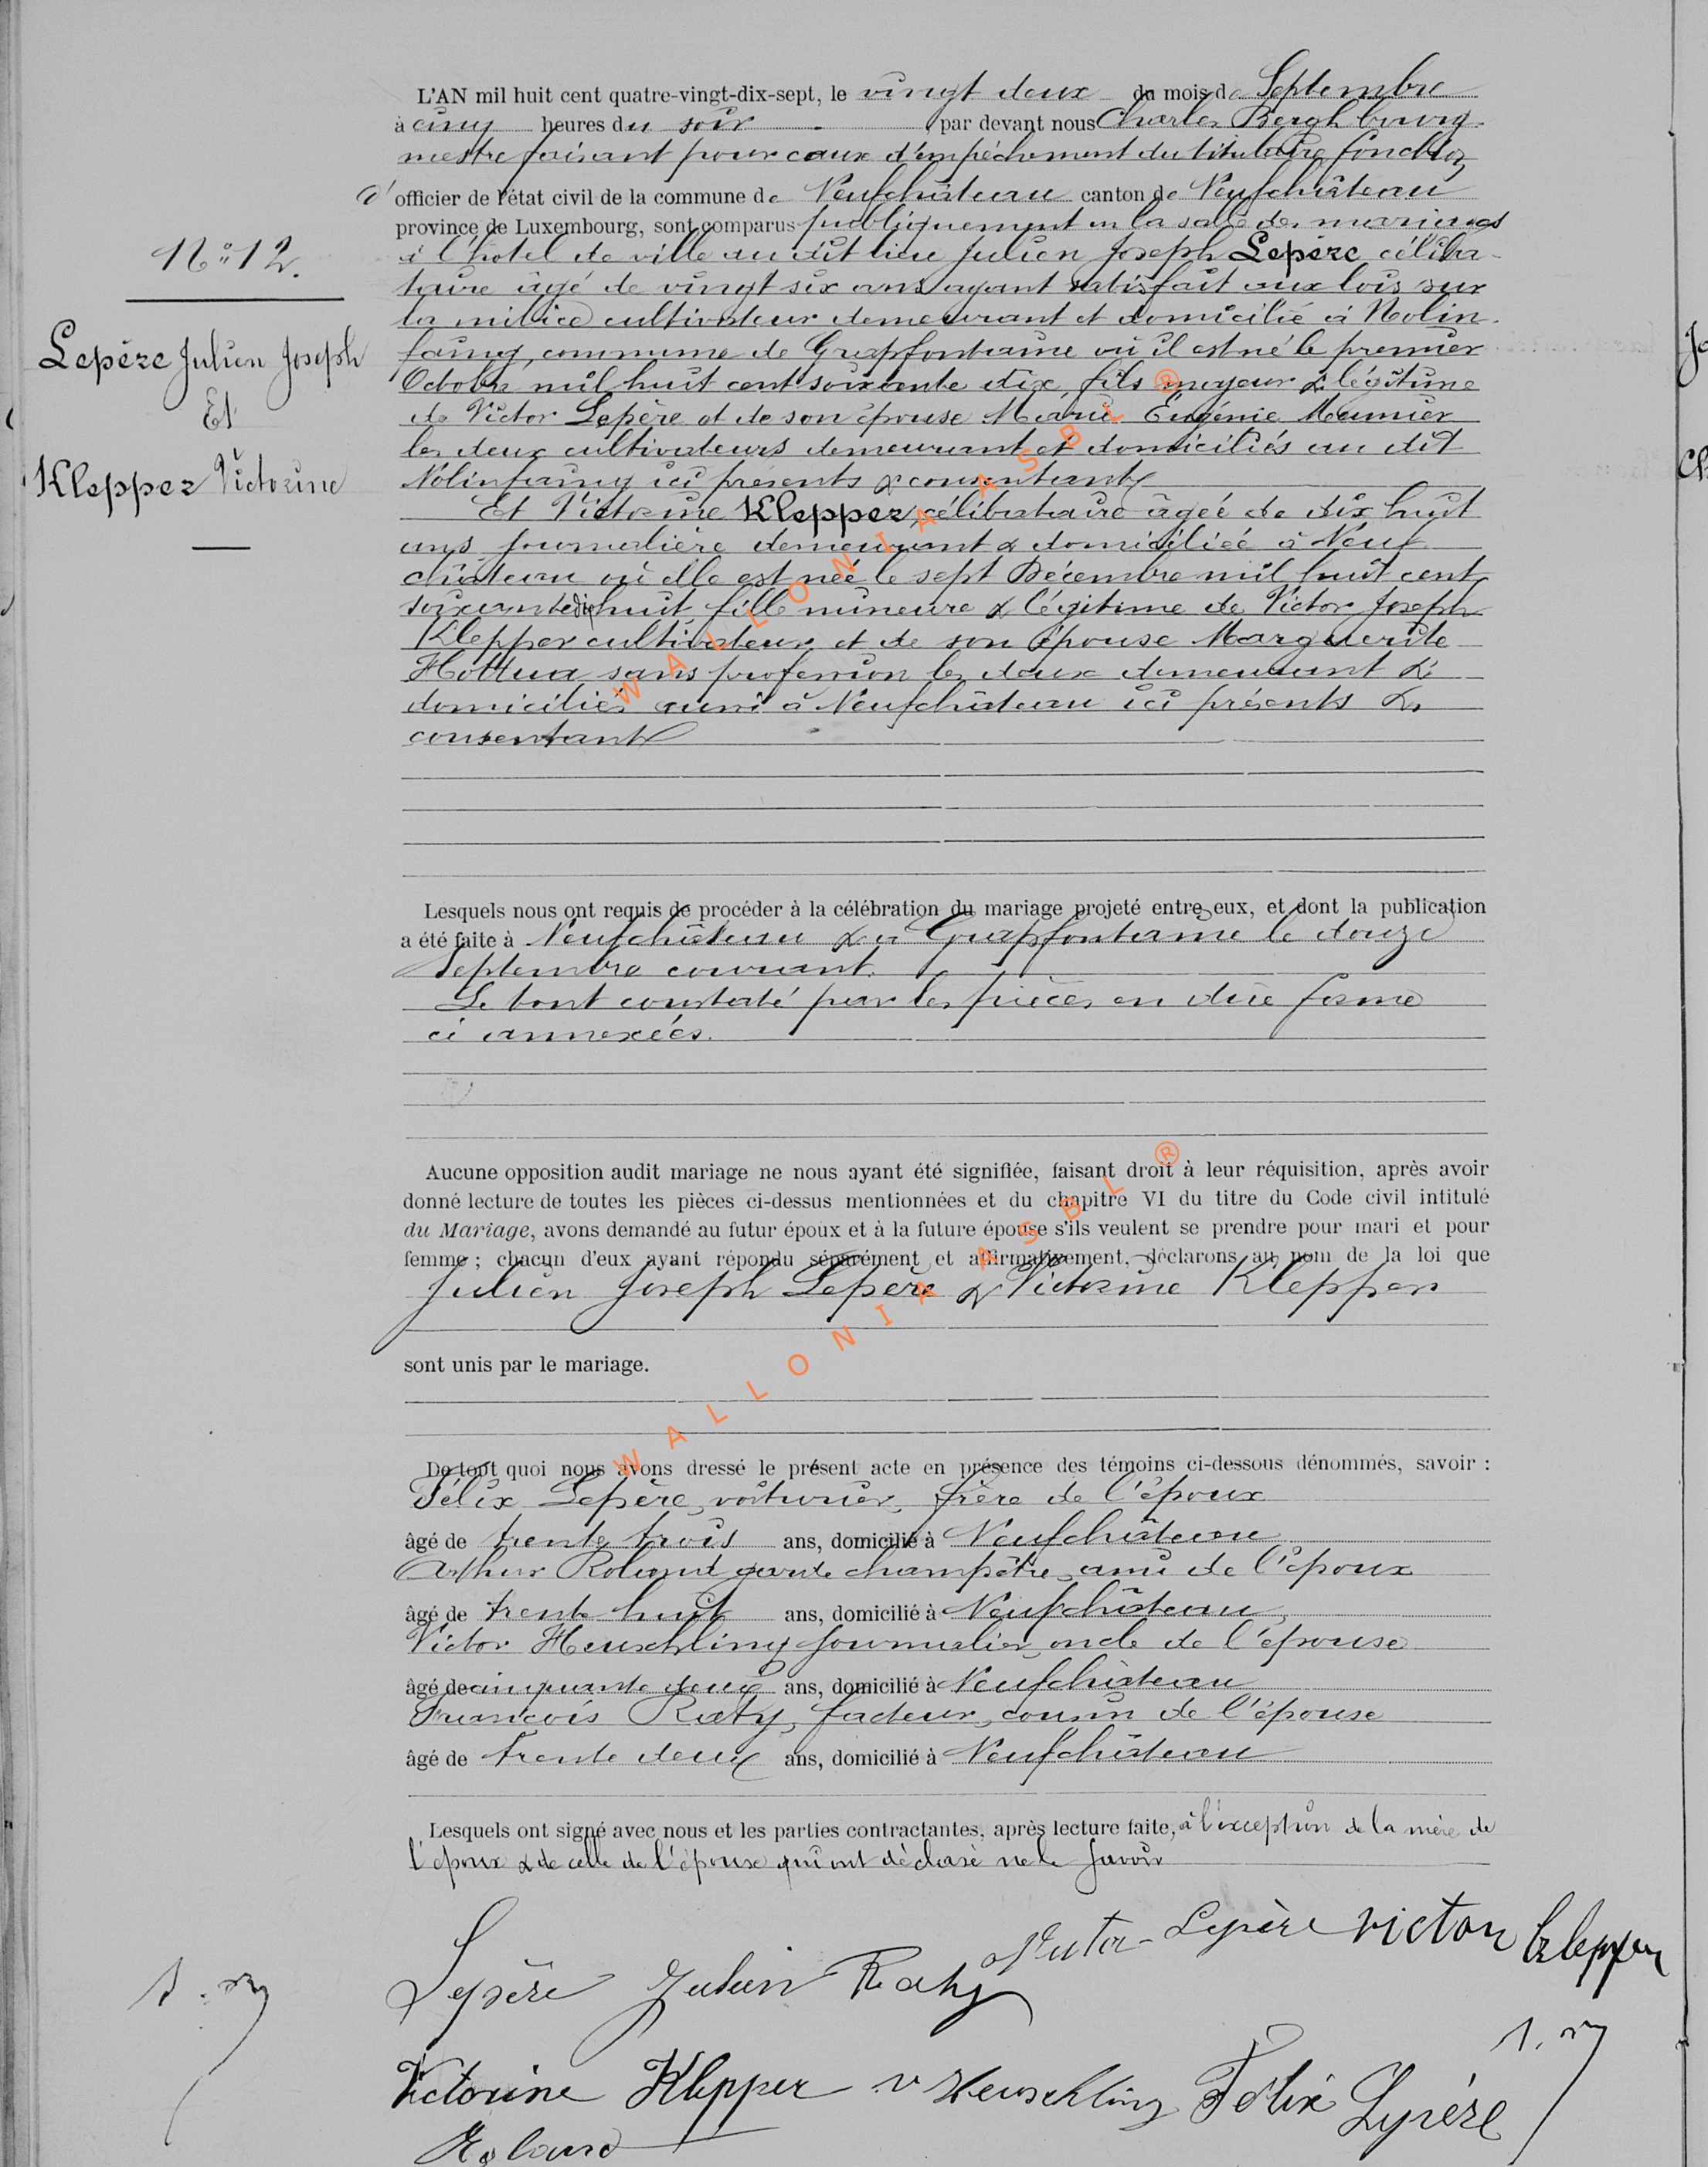 L'AN mil huit cent quatre-vingt-dix-sept, le vingt deux du mois de Septembre
à cinq heures du soir par devant nous Charles Bergh bourg
mestre faisant pour cause d'empêchement du titulaire fonction
d' officier de l'état civil de la commune de Neufchâteau canton de Neufchâteau
province de Luxembourg, sont comparus publiquement en la salle des mariages
N° 12.
à l'hotel de ville au dit lieu Julien Joseph Lepère céliba
taire âgé de vingt six ans ayant satisfait aux lois sur
la milice cultivateur demeurant et domicilié à Nolin
Lepère Julien Joseph
Et
Klepper Victorine
faing, commune de Grapfontaine où il est né le premier
Octobre mil huit cent soixante dix, fils majeur & légitime
de Victor Lepère et de son épouse Marie Eugénie Meunier
les deux cultivateurs demeurant et domiciliés au dit
Nolinfaing ici présents & consentants
Et Victorine Klepper, célibataire âgée de dix huit
ans journalière demeurant & domiciliée à Neuf
château où elle est née le sept Décembre mil huit cent
soixante dix huit fille mineure & légitime de Victor Joseph
Klepper cultivateur et de son épouse Marguerite
Hottua sans profession les deux demeurant &
domiciliés aussi à Neufchâteau ici présents &
consentants
Lesquels nous ont requis de procéder à la célébration du mariage projeté entre eux, et dont la publication
a été faite à Neufchâteau & à Grapfontaine le douze
Septembre courant.
Le tout constaté par les pièces en due forme
ci annexées.
Aucune opposition audit mariage ne nous ayant été signifiée, faisant droit à leur réquisition, après avoir
donné lecture de toutes les pièces ci-dessus mentionnées et du chapitre VI du titre du Code civil intitulé
du Mariage, avons demandé au futur époux et à la future épouse s'ils veulent se prendre pour mari et pour
femme ; chacun d'eux ayant répondu séparément et affirmativement, déclarons au nom de la loi que
Julien Joseph Lepère & Victorine Klepper
sont unis par le mariage.
De tout quoi nous avons dressé le présent acte en présence des témoins ci-dessous dénommés, savoir :
Félix Lepère, voiturier, frère de l'époux
âgé de trente trois ans, domicilié à Neufchâteau
Arthur Roland garde champêtre, ami de l'époux
âgé de trente huit ans, domicilié à Neufchâteau,
Victor Heuschling journalier, oncle de l'épouse
âgé de cinquante deux ans, domicilié à Neufchâteau
François Raty, facteur, cousin de l'épouse
âgé de trente deux ans, domicilié à Neufchâteau
Lesquels ont signé avec nous et les parties contractantes, après lecture faite, à l'exception de la mère de
l'époux & de celle de l'épouse qui ont déclaré ne le savoir
Lepère Julien Raty Victor Lepère victor klepper
Victorine Klepper v Heuschling Félix Lepère
Roland
WALLONIA ASBL ®
WALLONIA ASBL ®